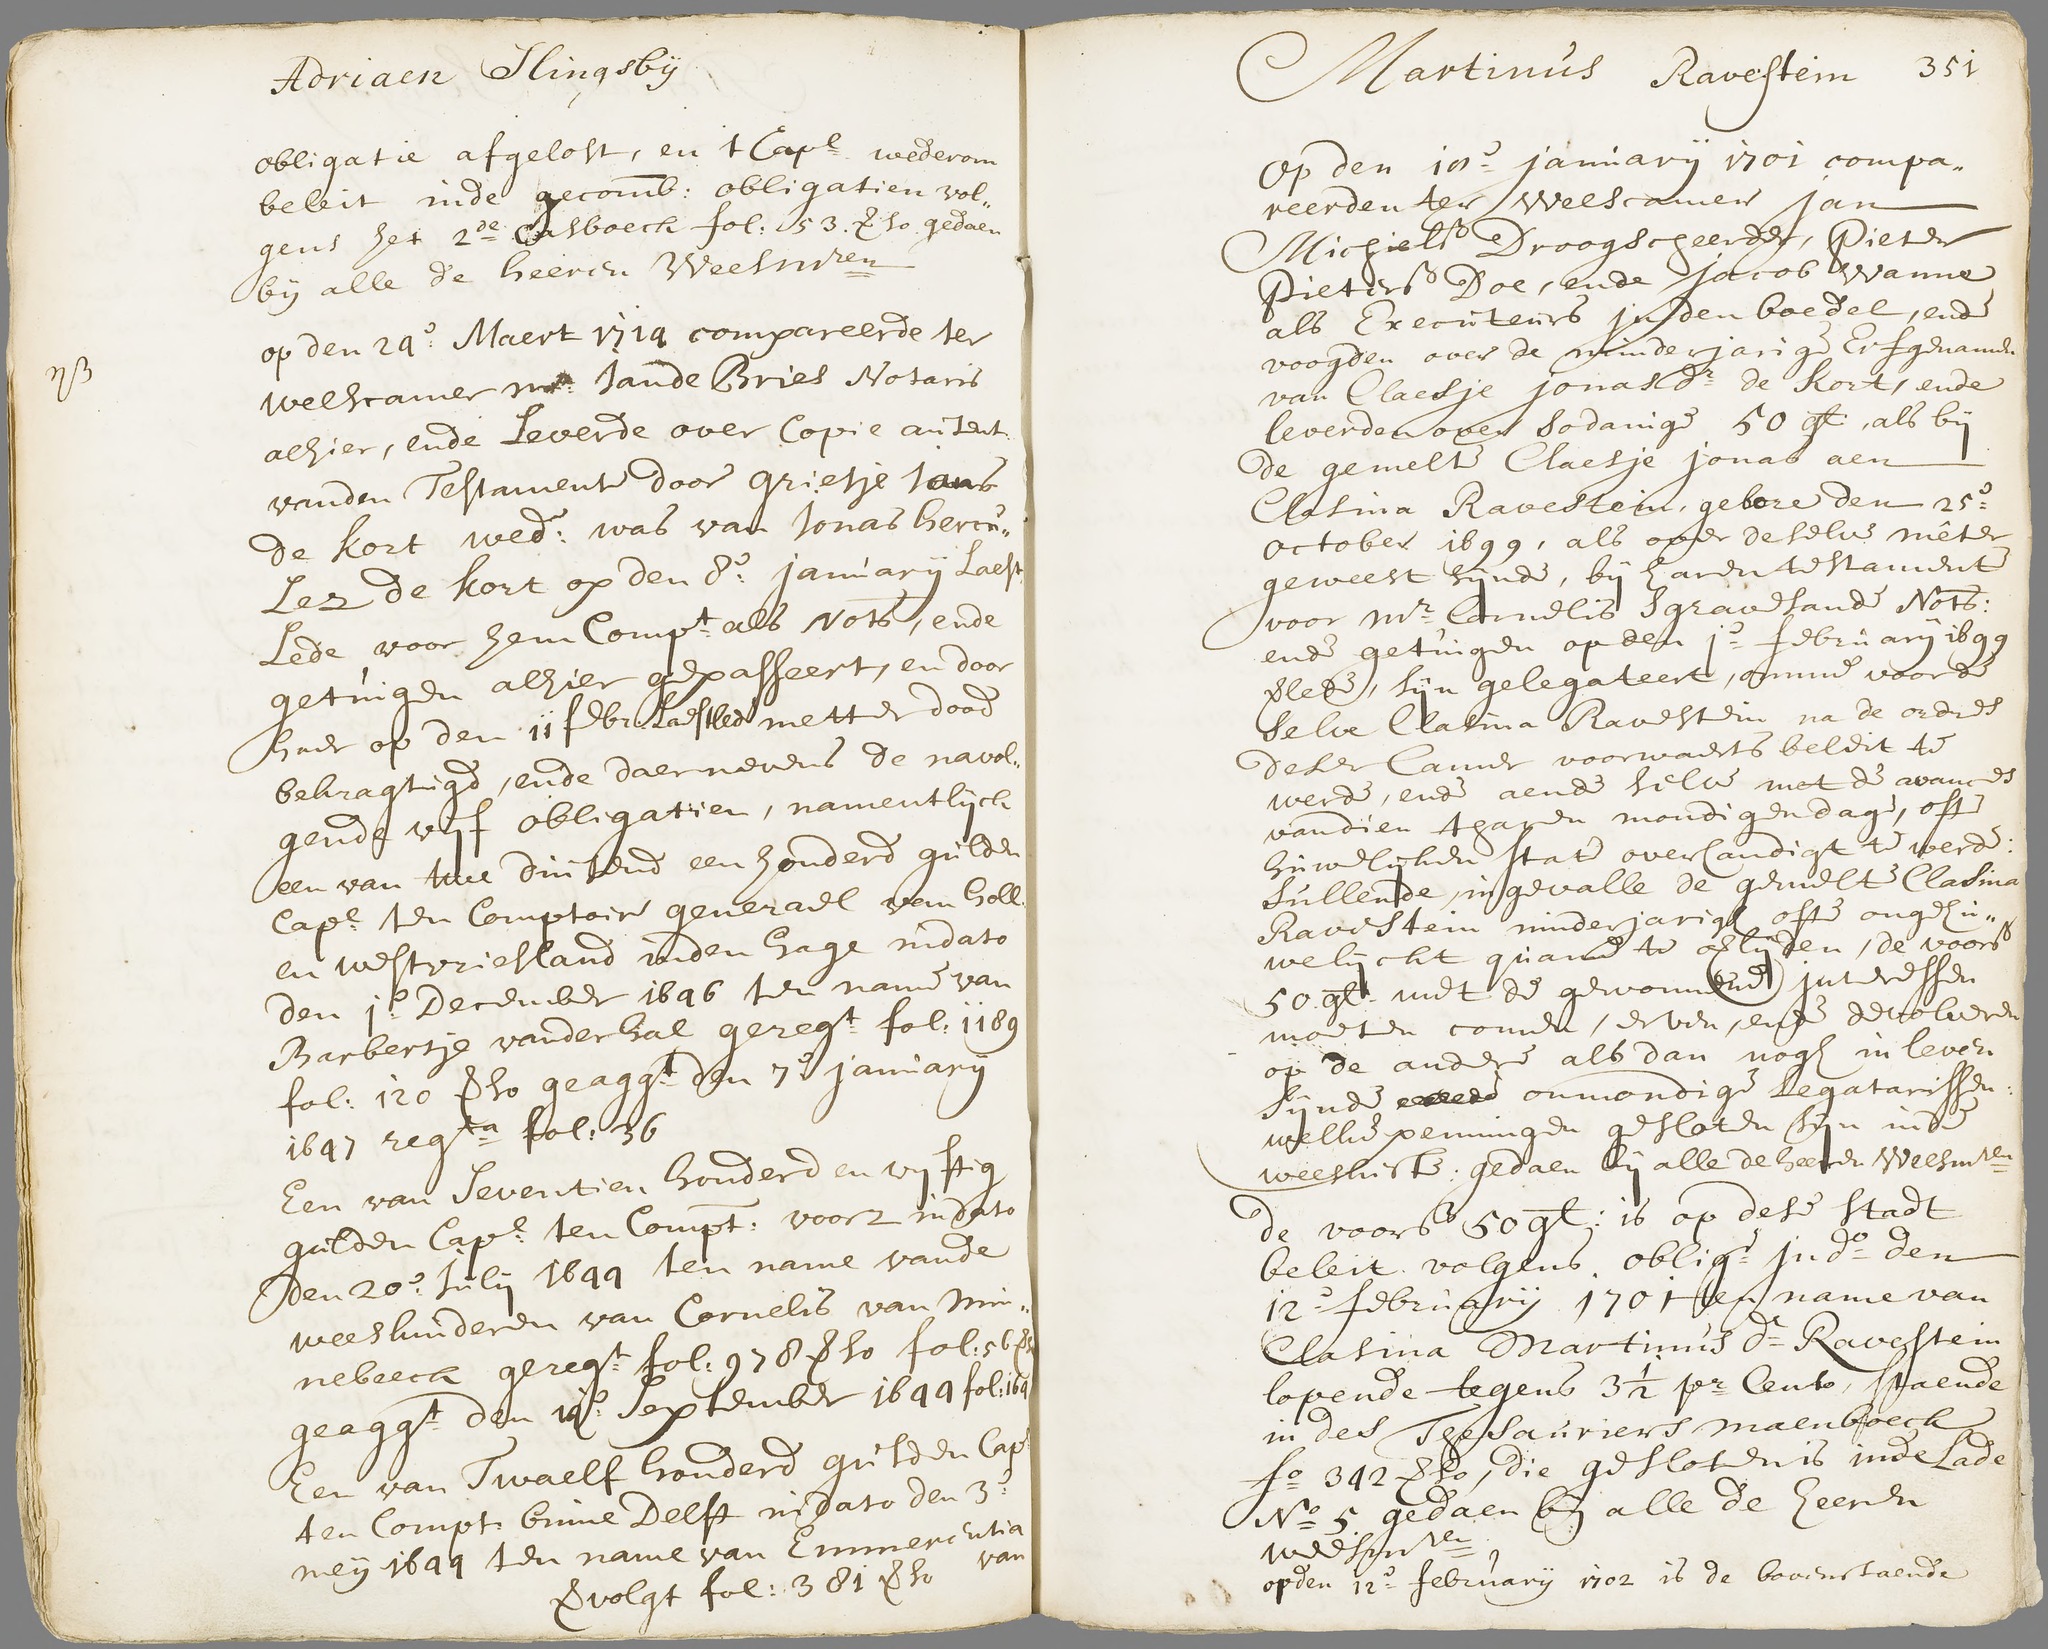 Adriaen Slingsbÿ
obligatie afgelost, en t Cap:l wederom
beleit inde gecomb: obligatien vol„
gens het 2:de Casboeck fol: 53. vso gedaen
bij alle de heeren Weesmren
NB
op den 29:e Maert 1714 compareerde ter
weescamer mr: Jan de Vries Notaris
alhier, ende Leverde over Copie autent:
vanden Testamente door grietje Jans
de Kort wed:e was van Jonas hercu„
Lez de Kort op den 8:e januarij Laest
Lede voor hem Comp:t als Nots, ende
getuigen alhier gepasseert, en door
haer op den 11 febr: Laestled metter dood
bekragtigd, ende daernevens de navol„
gende vijf obligatien, namentlijck
een van twe duisend een honderd gulden
Cap:l ten Comptoire generael van holl:
en westvriesland inden hage indato
den 1:e December 1696 ten name van
Barbertje vander hal gereg:t fol: 1189
fol: 120 vso geagg:t den 7:e januarij
1697 reg:ta fol: 36
Een van Seventien honderd en vijftig
gulden Cap:l ten Compt: voorz indato
den 20:e Julij 1699 ten name vande
weeskinderen van Cornelis van Min„
nebeeck gereg:t fol: 978 vso fol: 56 vso
geagg:t den 19:e September 1699 fol: 169
Een van Twaelf honderd gulden Cap:l
ten Compt: binne Delft indato den 3:e
meij 1699 ten name van Emmerentia
van
volgt fol: 381 vso
Martinus Ravestein 351
Op den 18:e januarij 1701 compa„
reerden ter Weescamer jan
Michielsz Droogscheerder, Pieter
Pietersz Doe, ende jacob Wanne
als Executeurs in den boedel, ende
voogden over de minderjarige Erfgenamen
van Claesje jonasdr de Kort, ende
leverden over sodanige 50 gl:, als bij
de gemelte Claesje jonas aen
Clasina Ravestein, gebore den 25:e
october 1699, als over deselve mêter
geweest sijnde, bij haren testamente
voor mr Cornelis sgravesande Nots:
ende getuigen op den 1:e februarij 1699
vlede, sijn gelegateert, omme voor de
selve Clasina Ravestein na de ordres
deser Camer voorwaerts beleit te
werde, ende aende selve met de avances
vandien tharen mondigen dage, ofte
huwelijken state overhandigt te werde:
sullende, ingevalle de gemelte Clasina
Ravestein minderjarigh ofte ongehu„
welijckt quame te overlijden, de voorsz
50 gl: met de gewonnene interessen
moeten comen, erven, ende devolveren
op de andere als dan nogh in leven
sijnde onmondige Legatarissen:
welke penningen gesloten sijn inde
weeskiste: gedaen bij alle de heeren Weesmren
de voorsz 50 gl: is op dese stadt
beleit volgens oblig:e indo den
12:e februarij 1701 ten name van
Clasina Martinus dr Ravestein
lopende tegens 3½ pr Cento, staende
in des Thesauriers maenboeck
fo 342 vso, die gesloten is inde Lade
No 5 gedaen bij alle de heeren
weesmren
opden 12:e februarij 1702 is de bovenstaende